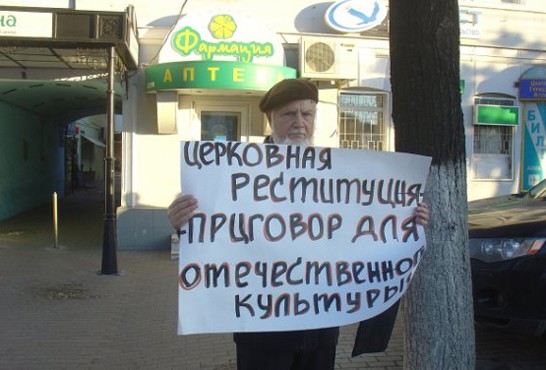 Фармация
АПТЕ
ЦЕРКОВНАЯ
РЕСТИТУЦИЯ-
-ПРИГОВОР ДЛЯ
ОТЕЧЕСТВЕННОГО
КУЛЬТУРЫ